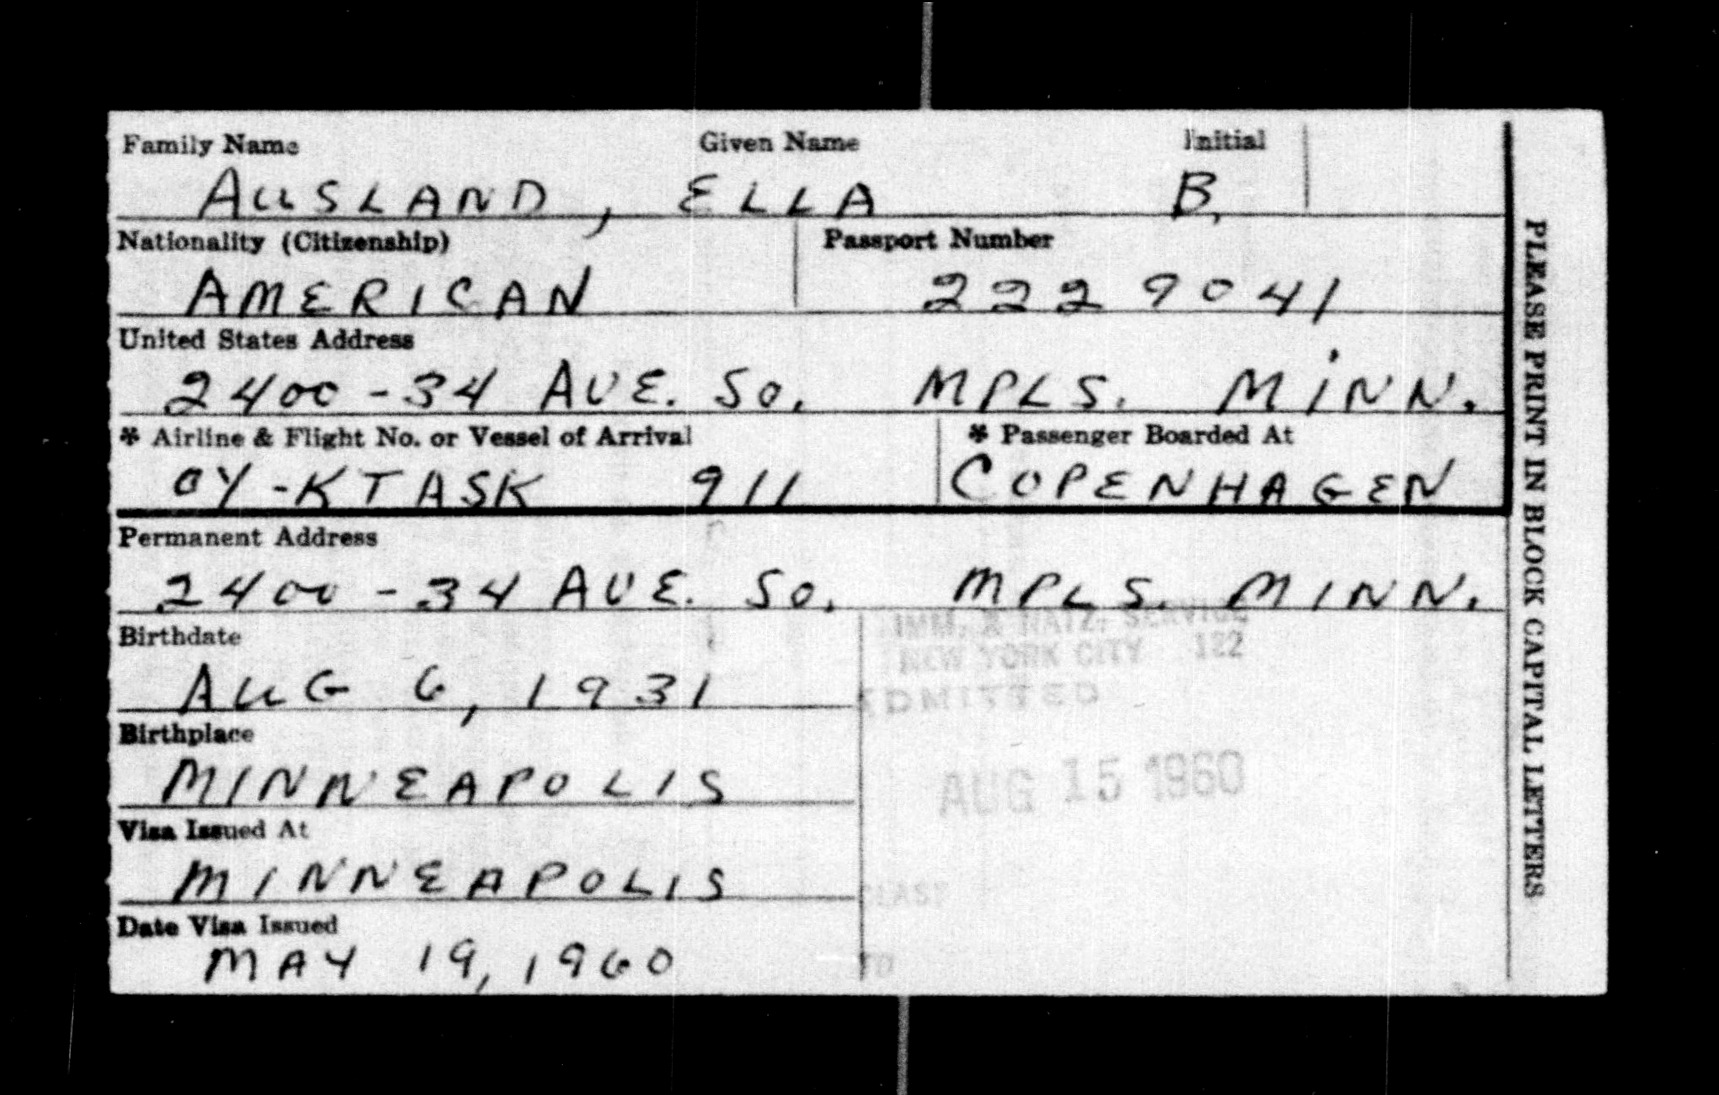 Family Name Given Name Initial
AUSLAND, ELLA B.
Nationality (Citizenship) Passport Number
AMERICAN 2229041
United States Address
2400-34 AVE. SO. MPLS. MINN.
* Airline & Flight No. or Vessel of Arrival * Passenger Boarded At
OY-KTASK 911 COPENHAGEN
Permanent Address
2400-34 AVE. SO. MPLS. MINN.
IMM. & NATZ. SERVICE
Birthdate
NEW YORK CITY 122
AUG 6, 1931
ADMITTED
Birthplace
MINNEAPOLIS
AUG 15 1960
Visa Issued At
MINNEAPOLIS
CLASS
Date Visa Issued
MAY 19, 1960
TO
PLEASE PRINT IN BLOCK CAPITAL LETTERS